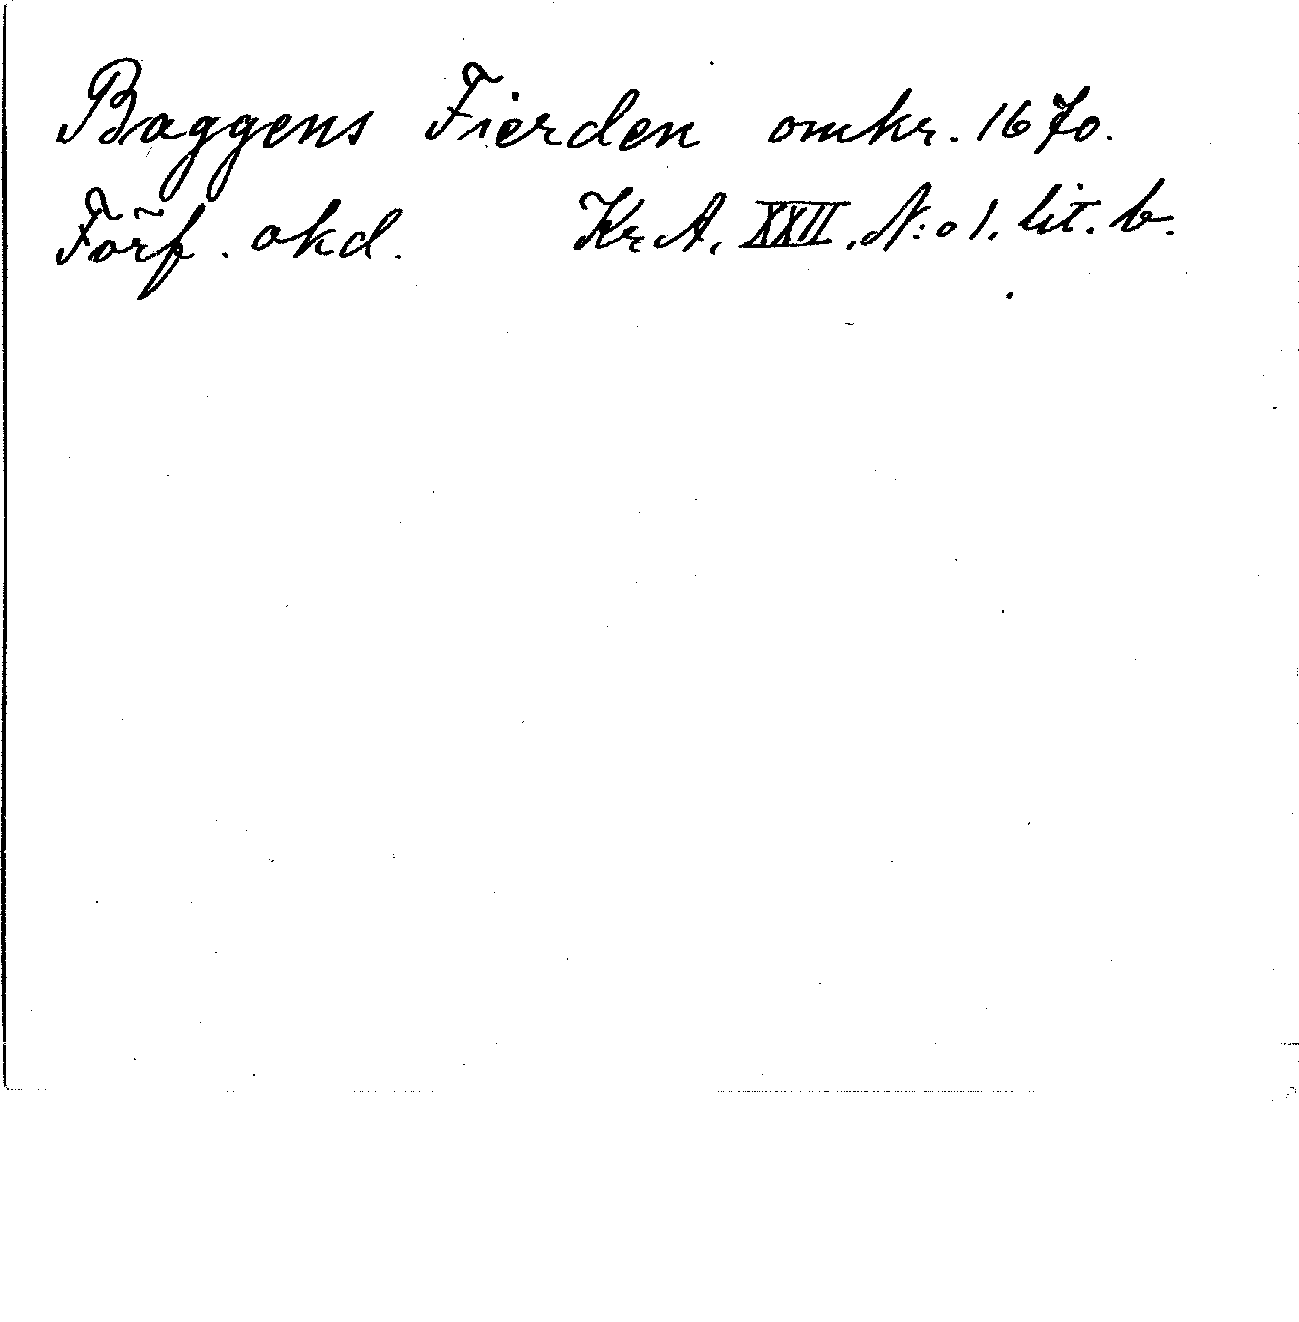 Baggens Fierden omkr. 1670.
Förf. okd. Kr A. XXII. N:o 1. lit. b.